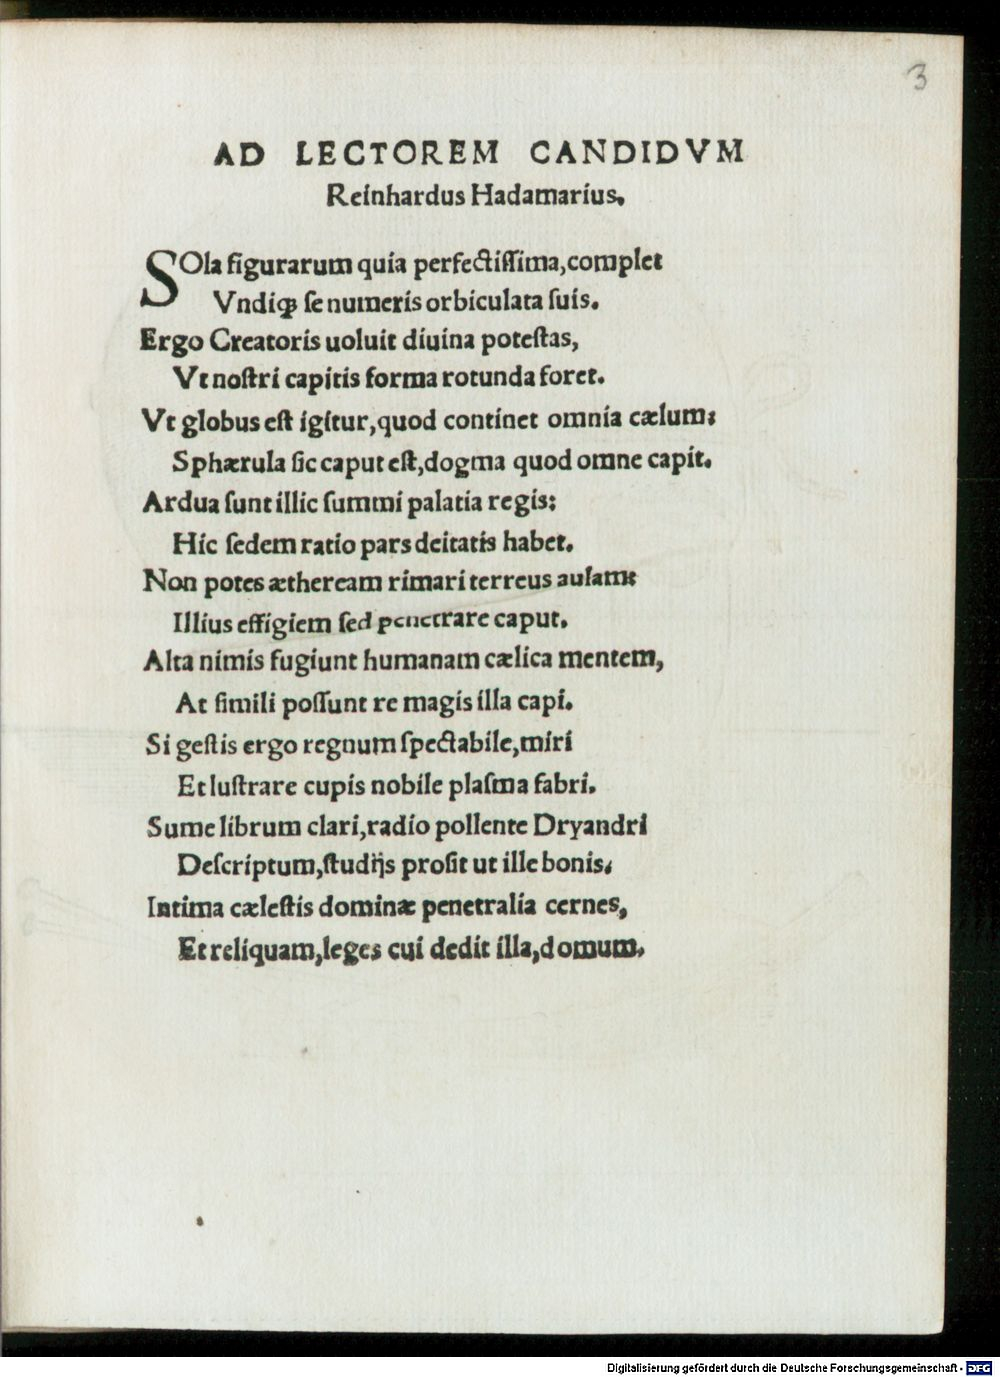 3
AD LECTOREM CANDIDVM
Reinhardus Hadamarius.
SOla figurarum quia perfectiſſima,complet
Vndiqꝫ ſe numeris orbiculata ſuis.
Ergo Creatoris uoluit diuina poteſtas,
Vt noſtri capitis forma rotunda foret.
Vt globus eſt igitur,quod continet omnia cælum:
Sphærula ſic caput eſt,dogma quod omne capit.
Ardua ſunt illic ſummi palatia regis:
Hic ſedem ratio pars deitatis habet.
Non potes ætheream rimari terreus aulam:
Illius effigiem ſed penetrare caput.
Alta nimis fugiunt humanam cælica mentem,
At ſimili poſſunt re magis illa capi.
Si geſtis ergo regnum ſpectabile,miri
Et luſtrare cupis nobile plaſma fabri.
Sume librum clari,radio pollente Dryandri
Deſcriptum,ſtudijs proſit ut ille bonis.
Intima cæleſtis dominæ penetralia cernes,
Et reliquam,leges cui dedit illa,domum.
Digitalisierung gefördert durch die Deutsche Forschungsgemeinschaft - DFG